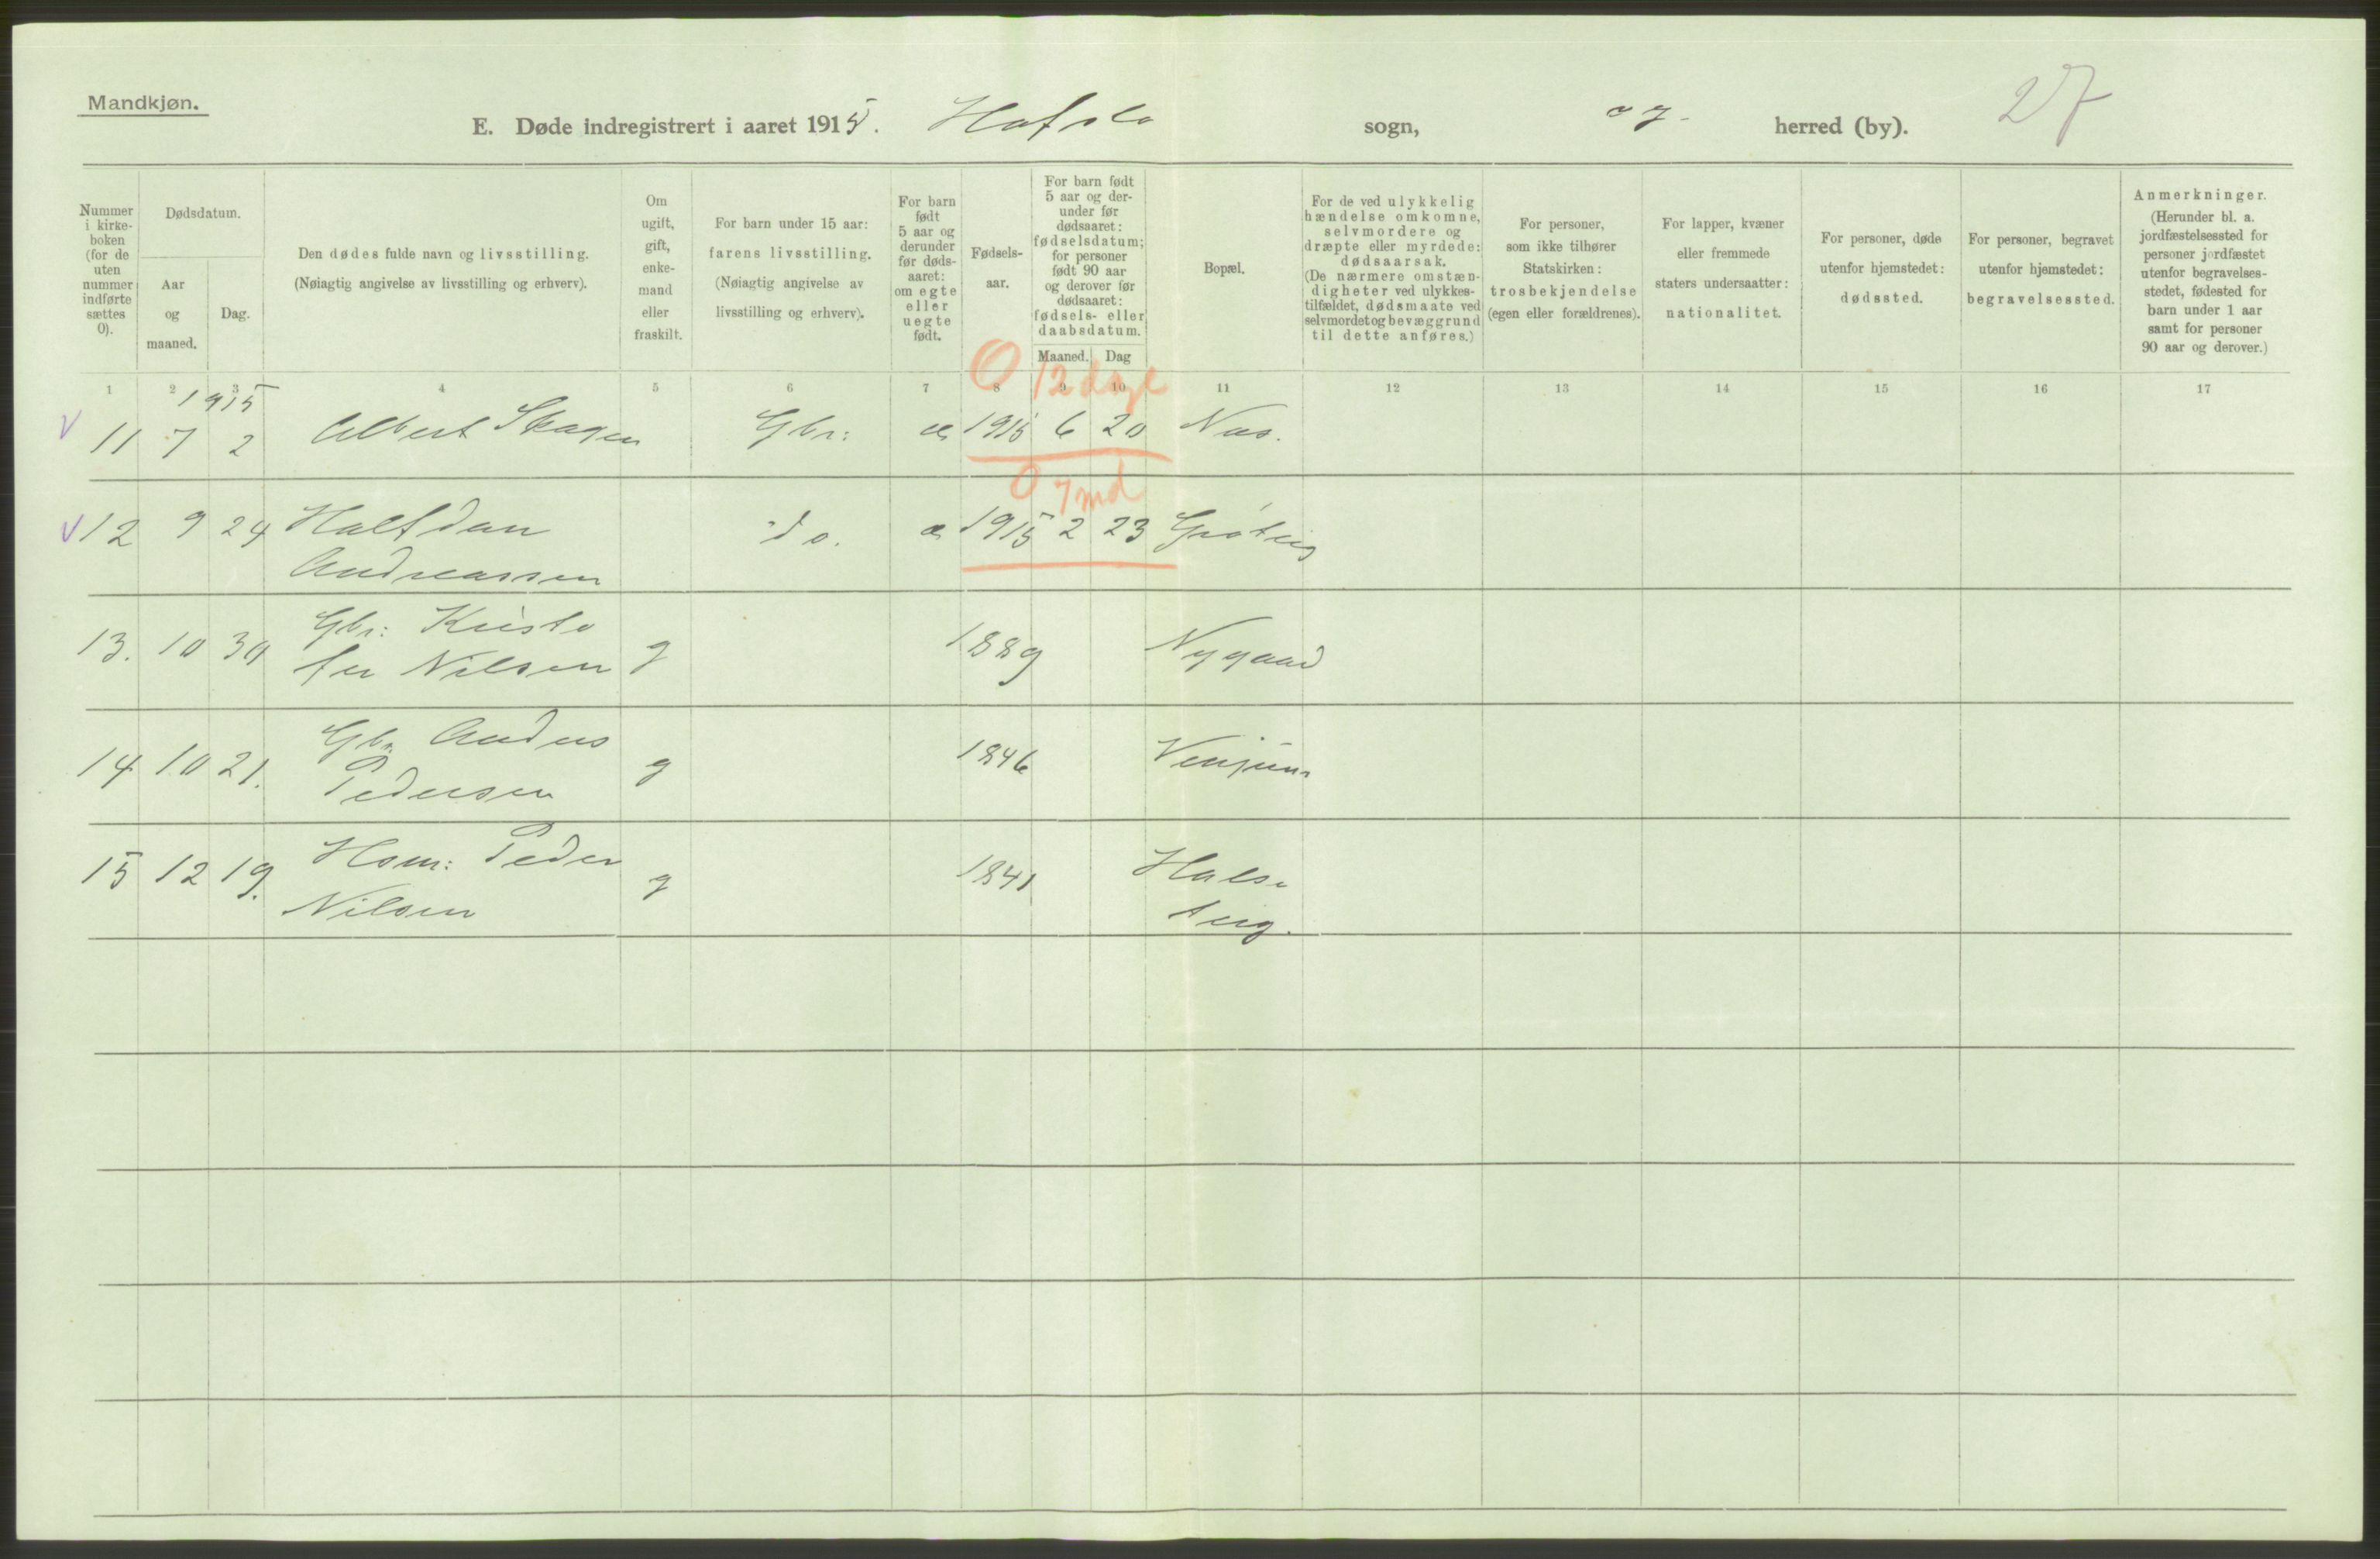 Mandkjøn.
E. Døde indregistrert i aaret 1915. Hafslo sogn, og herred (by). 27
Nummer i kirke- boken (for de uten nummer indførte sættes 0).
Dødsdatum.
Aar og maaned.
Dag.
Den dødes fulde navn og livsstilling.
(Nøiagtig angivelse av livsstilling og erhverv).
Om ugift, gift, enke- mand eller fraskilt.
For barn under 15 aar:
farens livsstilling.
(Nøiagtig angivelse av
livsstilling og erhverv).
For barn født 5 aar og derunder før døds- aaret: om egte eller uegte født.
Fødsels- aar.
For barn født 5 aar og der- under før dødsaaret: fødselsdatum; for personer født 90 aar og derover før dødsaaret: fødsels- eller daabsdatum.
Maaned. Dag
Bopæl.
For de ved ulykkelig hændelse omkomne, selvmordere og dræpte eller myrdede: dødsaarsak. (De nærmere omstæn- digheter ved ulykkes- tilfældet, dødsmaate ved selvmordet og bevæggrund til dette anføres.)
For personer, som ikke tilhører Statskirken: trosbekjendelse (egen eller forældrenes).
For lapper, kvæner eller fremmede staters undersaatter: nationalitet.
For personer, døde utenfor hjemstedet: dødssted.
For personer, begravet utenfor hjemstedet: begravelsessted.
Anmerkninger.
(Herunder bl. a. jordfæstelsessted for personer jordfæstet utenfor begravelses- stedet, fødested for barn under 1 aar samt for personer 90 aar og derover.)
1 2 3 4 5 6 7 8 9 10 11 12 13 14 15 16 17
1915
0 12 dage
V 11 7 2 Albert Skagen Gbr: æ 1915 6 20 Næs.
0 7 md
V 12 9 24 Halfdan do. æ 1915 2 23
Andreassen
13. 10 30 Gbr: Kristo
fer Nilsen g 1889 Nygaard
14 10 21. Gbr. Anders
Pedersen g 1846 Venjum
15 12 19. Hsm: Peder g 1841 Halsa
Nilsen teig.